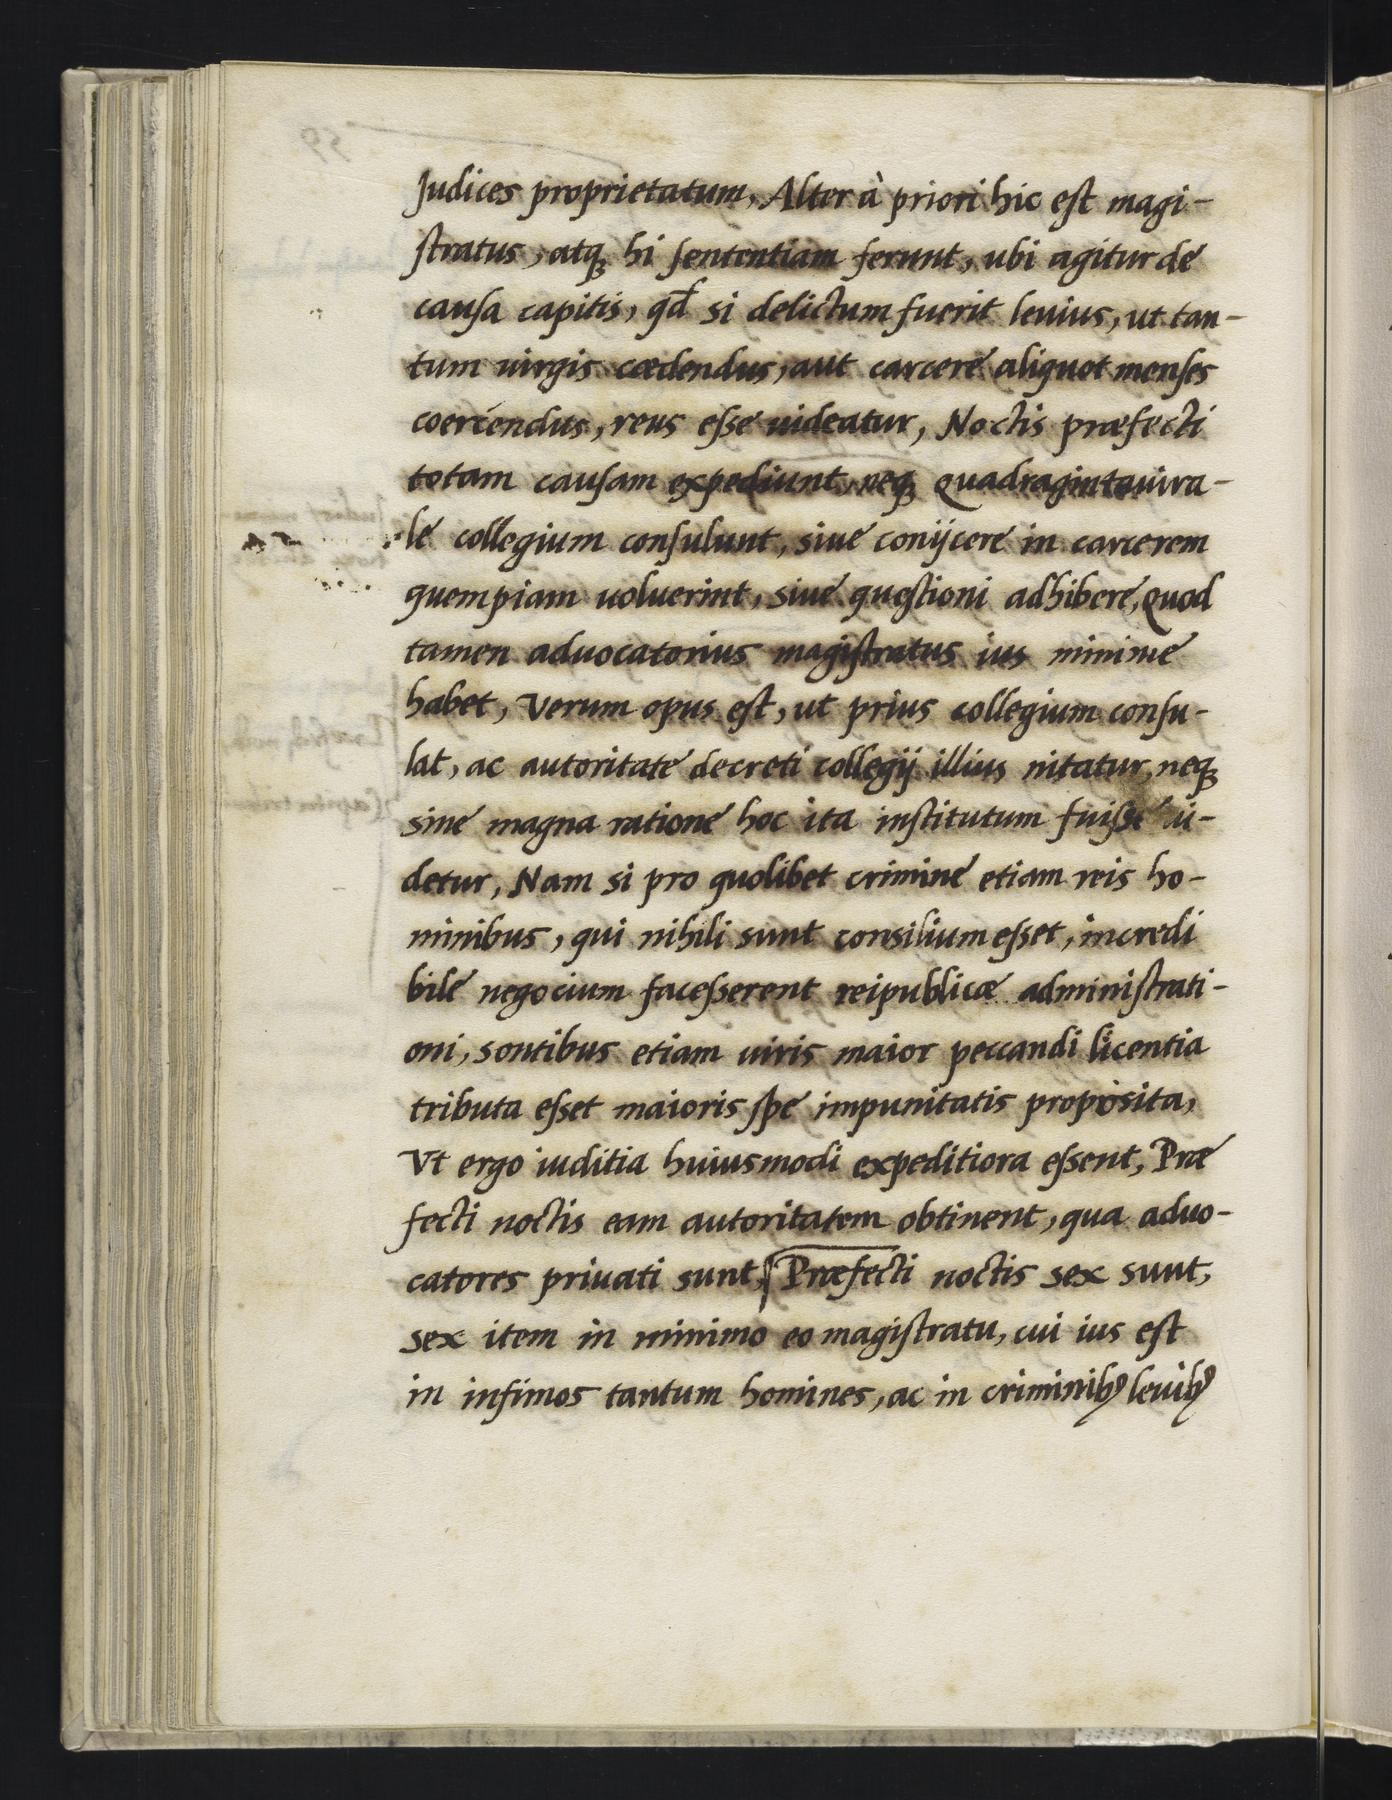 Judices proprietatum, Alter à priori hic est magi-
stratus, atq; hi sententiam ferunt, ubi agitur de
causa capitis, qd si delictum fuerit leuius, ut tan-
tum uirgis cædendus, aut carcere aliquot menses
coercendus, reus esse uideatur, Noctis præfecti
totam causam expediunt, neq; Quadragintauira-
le collegium consulunt, siue conijcere in carcerem
quempiam uoluerint, siue questioni adhibere, quod
tamen aduocatorius magistratus ius minime
habet, Verum opus est, ut prius collegium consu-
lat, ac autoritate decreti collegij illius nitatur, neq;
sine magna ratione hoc ita institutum fuisse ui-
detur, Nam si pro quolibet crimine etiam reis ho-
minibus, qui nihili sunt consilium esset, incredi
bile negocium facesserent reipublicæ administrati-
oni, sontibus etiam uiris maior peccandi licentia
tributa esset maioris spe impunitatis proposita,
Vt ergo iuditia huiusmodi expeditiora essent, Præ
fecti noctis eam autoritatem obtinent, qua aduo-
catores priuati sunt, Præfecti noctis sex sunt,
sex item in minimo eo magistratu, cui ius est
in infimos tantum homines, ac in criminibꝰ leuibꝰ